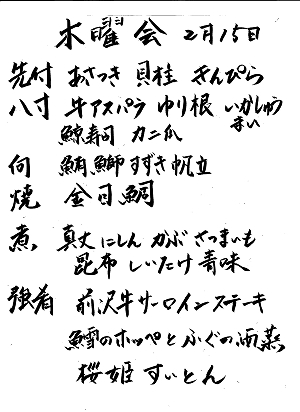 木曜会 2月15日
先付 あさつき 貝柱 きんぴら
八寸 牛アスパラ ゆり根 いかしゅうまい
鯨寿司 カニ爪
向 鮪 鰤 すずき 帆立
焼 金目鯛
煮 真丈 にしん かぶ さつまいも
昆布 しいたけ 青味
強肴 前沢牛サーロインステーキ
鱈のホッペとふぐの酒蒸
桜姫 すいとん